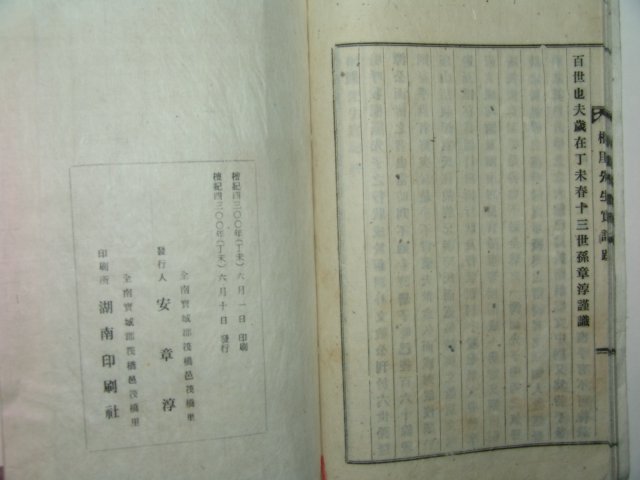 先生實記跋
百世也夫歲在丁未春十三世孫章淳謹識
檀紀四三〇〇年(丁未)六月一日 印刷
檀紀四三〇〇年(丁未)六月十日 發行
全南寶城郡筏橋邑筏橋里
發行人 安章淳
全南寶城郡筏橋邑筏橋里
印刷所 湖南印刷社